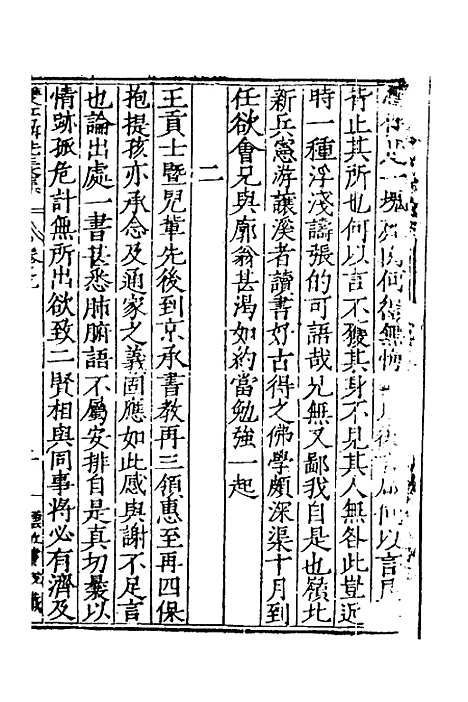 一塊何以無悔以言
背止其所也何以言不獲其身不見其人無咎此豈近
時一種浮淺譸張的可語哉兄無又鄙我自是也嶺北
新兵憲游讓溪者讀書好古得之佛學頗深渠十月到
任欲會兄與廓翁甚渴如約當勉強一起
二
王貢士暨兒輩先後到京承書教再三領惠至再四保
抱提孩亦承念及通家之義固應如此感與謝不足言
也論出處一書甚悉肺腑語不屬安排自是真切曩以
情跡孤危計無所出欲致二賢相與同事將必有濟及
雙江聶先生文集 卷之九 雲丘書院藏